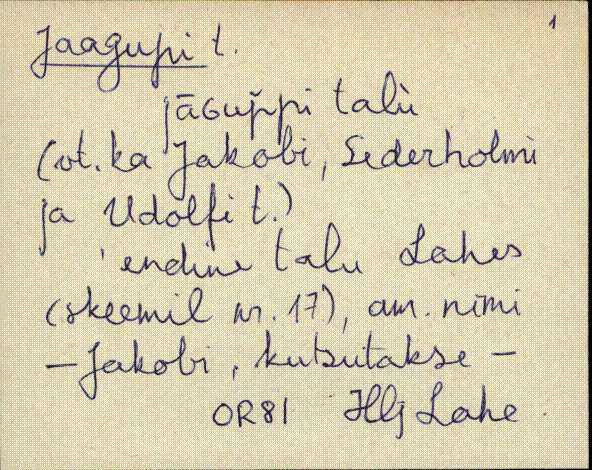 1
Jaagupi t.
jāGup̆pi talù
(vt. ka Jakobi, Sederholmi
ja Udolfi t.)
'endine talu Lahes
(skeemil nr. 17), am. nimi
– Jakobi, kutsutakse –
OR81 Hlj Lahe